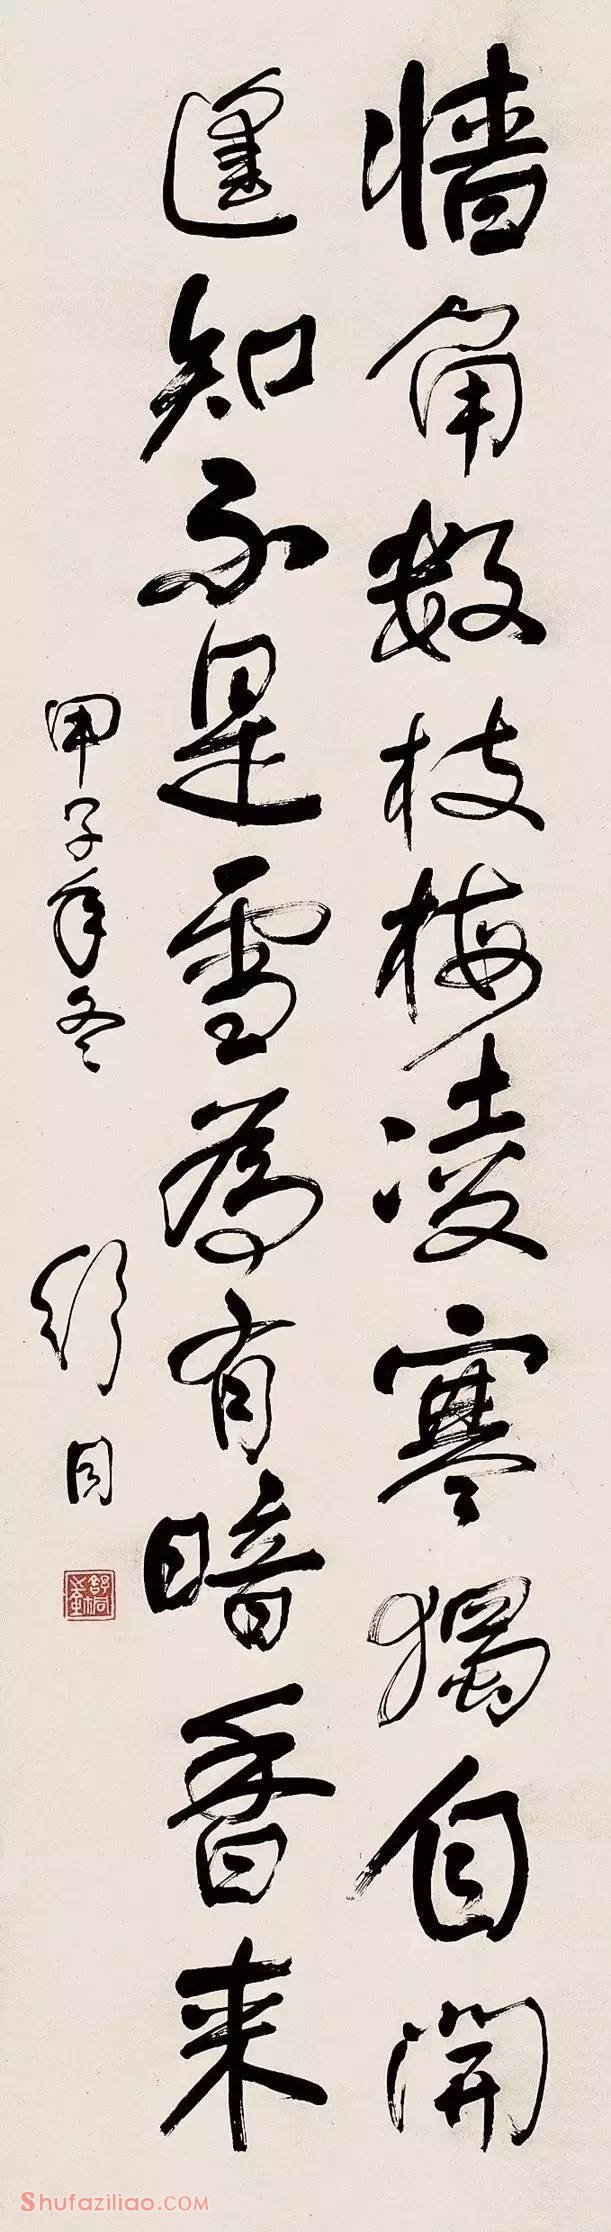 牆角数枝梅凌寒獨自開
遥知不是雪為有暗香来
甲子年冬
舒同
Shufaziliao.COM